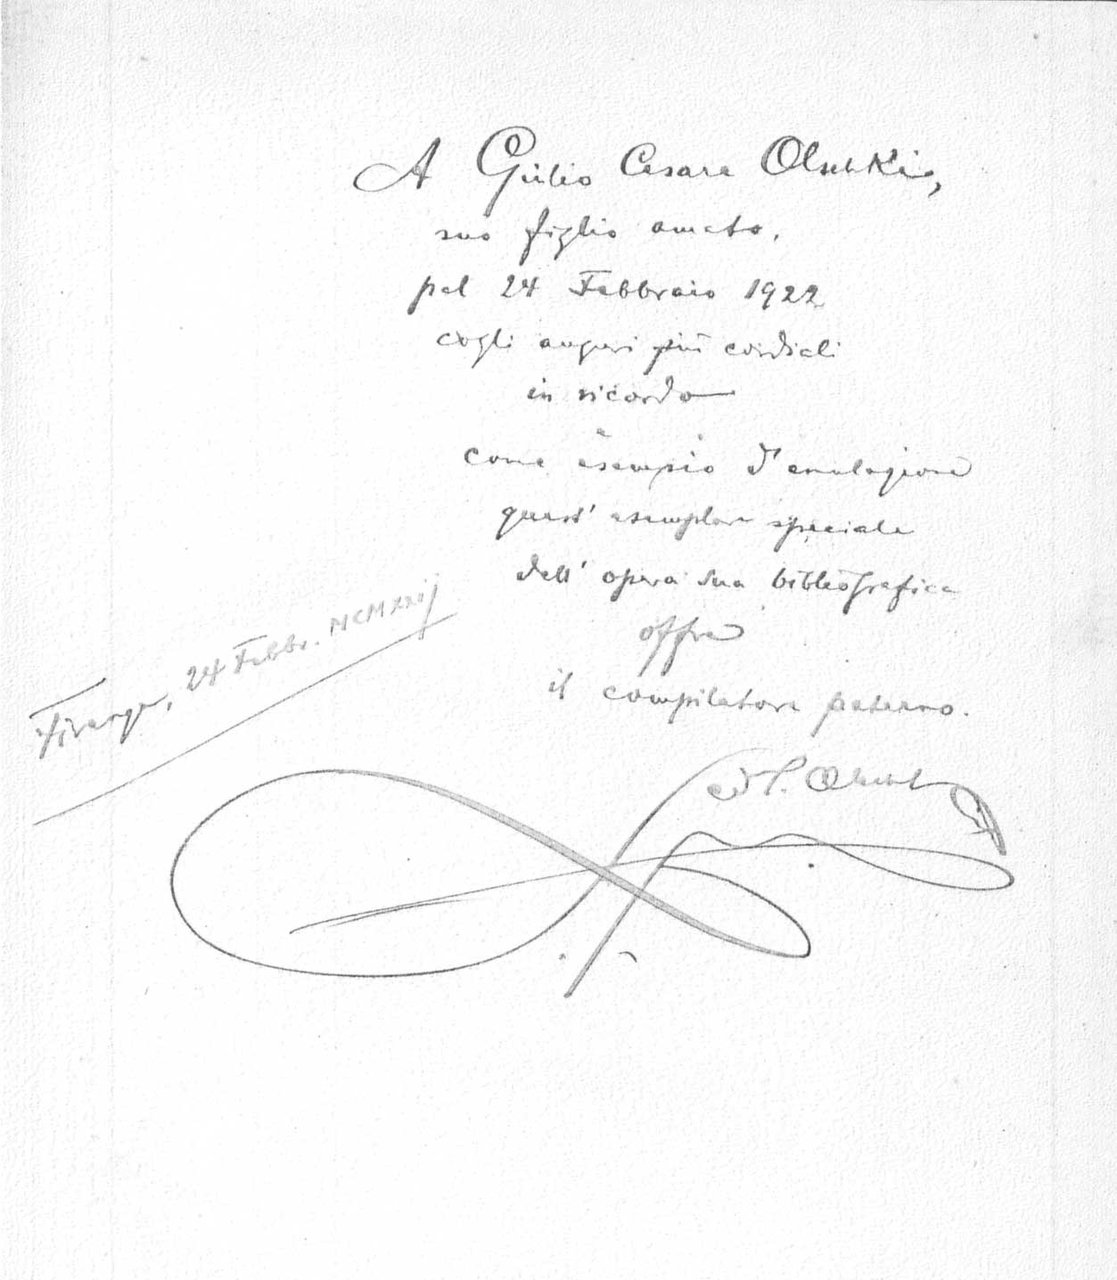 A Giulio Cesare Olschki,
suo figlio amato,
pel 24 Febbraio 1922
cogli auguri più cordiali
in ricordo
come esempio d'emulazione
quest' esemplare speciale
dell' opera sua bibliografica
offre
il compilatore paterno.
Firenze, 24 Febbr. MCMXXij
Olschki